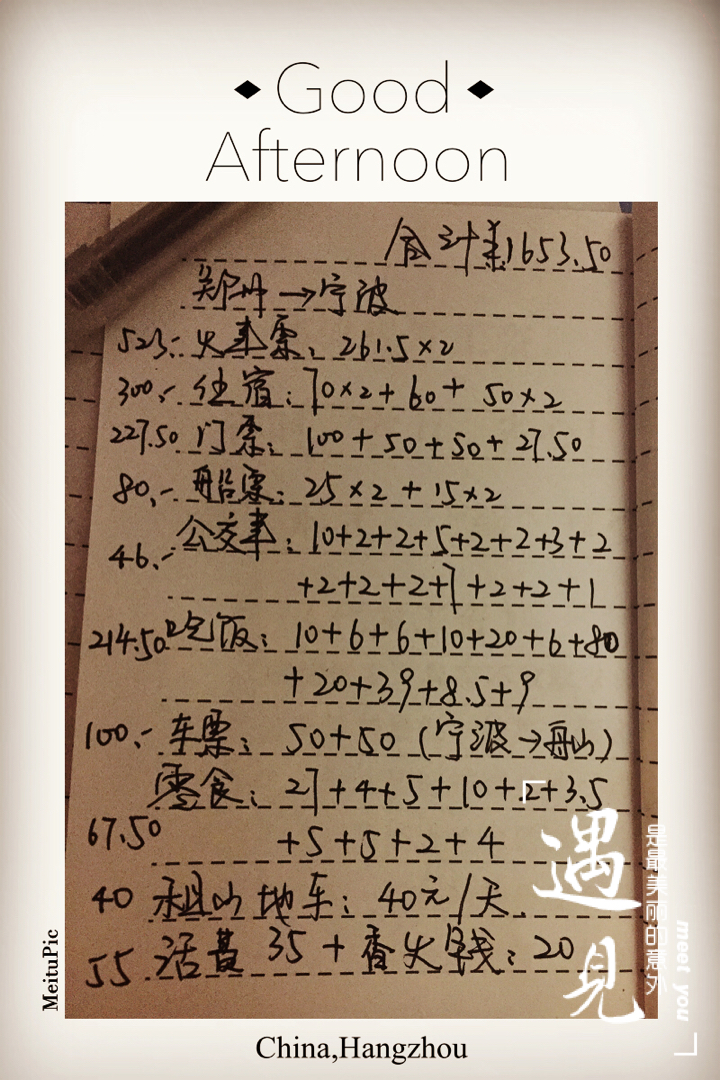 Good
Afternoon
合计差1653.50
郑州→宁波
523.- 火车票: 261.5×2
300.- 住宿: 70×2+60+50×2
227.50 门票: 100+50+50+27.50
80.- 船票: 25×2+15×2
46.- 公交车: 10+2+2+5+2+2+3+2
+2+2+2+7+2+2+1
214.50 吃饭: 10+6+6+10+20+6+80
+20+39+8.5+9
100.- 车票: 50+50 (宁波→舟山)
零食: 27+4+5+10+2+3.5
67.50 +5+5+2+4
40 租山地车: 40元/天.
55 话费 35+香火钱: 20
遇見
是最美丽的意外
meet you
MeituPic
China,Hangzhou